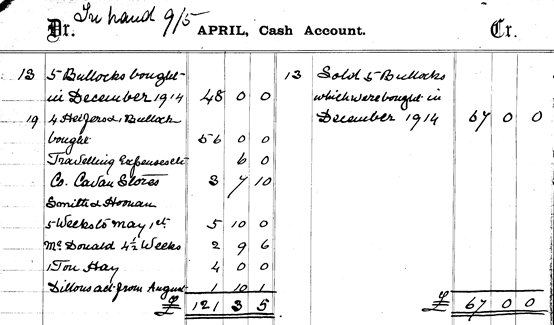 In hand 9/5
Dr. APRIL, Cash Account. Cr.
13 5 Bullocks bought
in December 1914 48 0 0
19 4 Heifers & 1 Bullock
bought 56 0 0
Travelling Expenses etc 6 0
Co. Cavan Stores 3 7 10
Smith & Noonan
5 Weeks to May 1st. 5 10 0
McDonald 4½ Weeks 2 9 6
1 Ton Hay 4 0 0
Dillons act. from August 1 10 1
£ 121 3 5
13 Sold 5 Bullocks
which were bought in
December 1914 67 0 0
£ 67 0 0